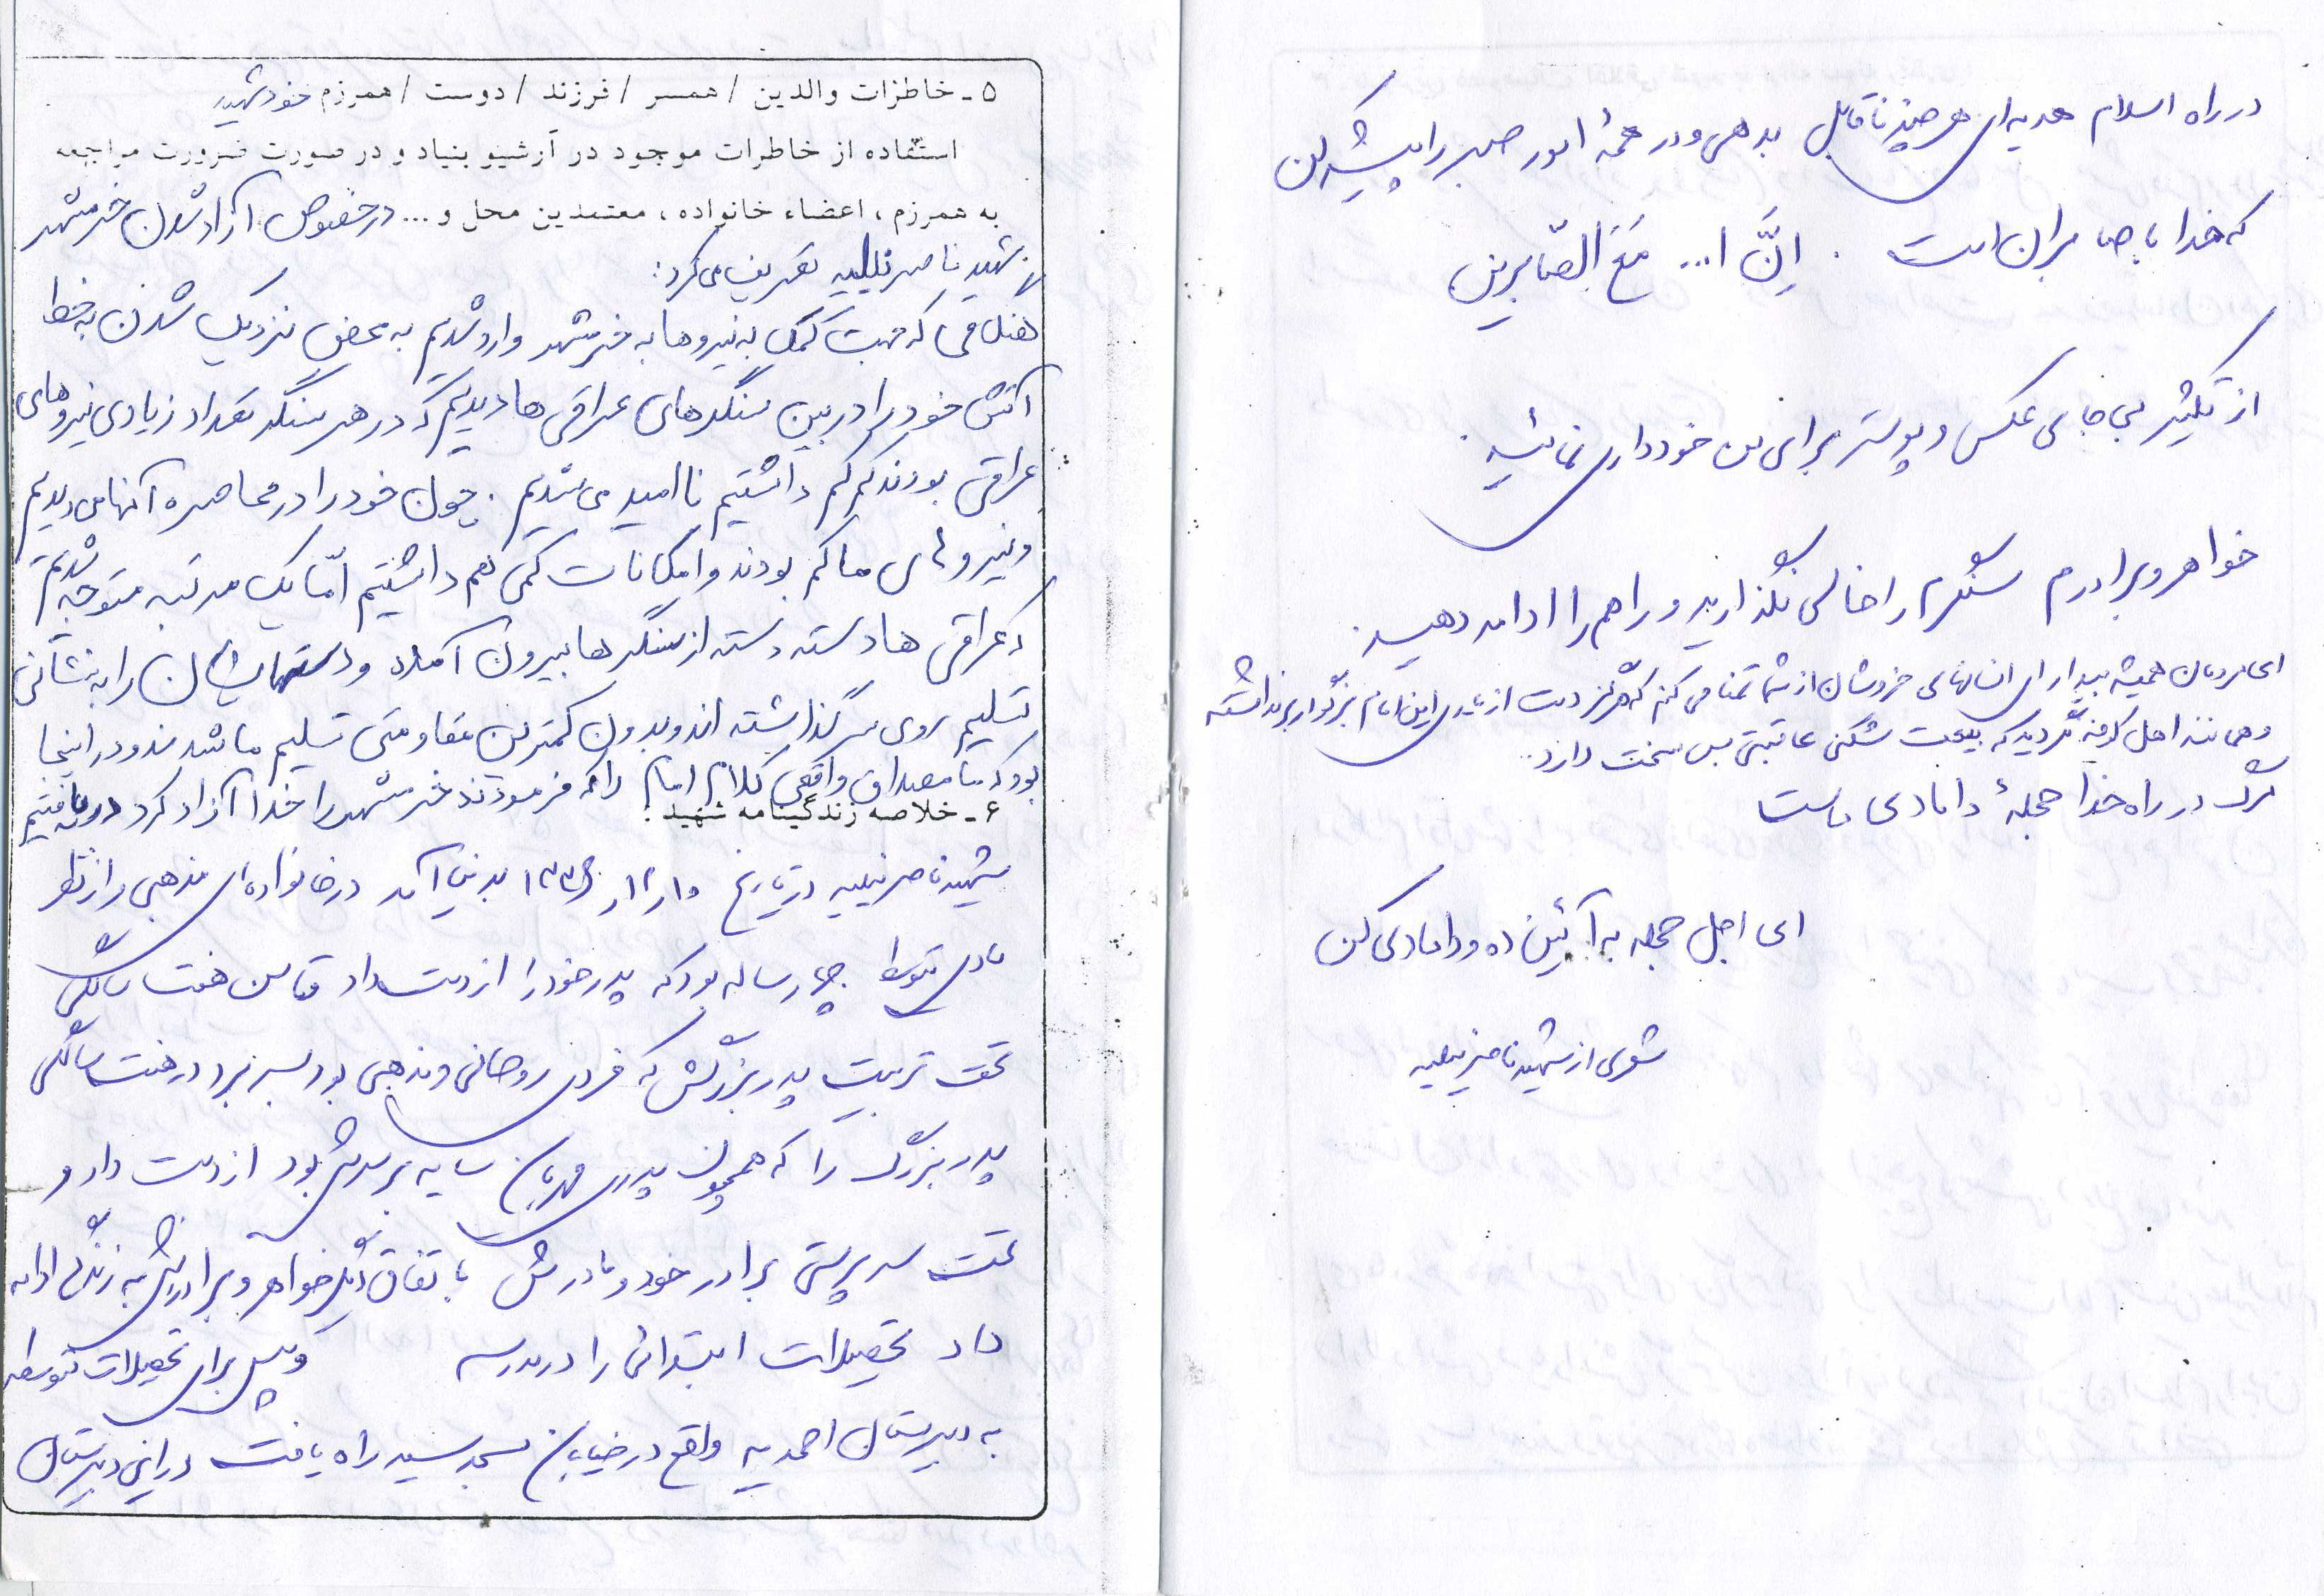 در راه اسلام هدیه‌ای هر چند ناقابل بدهی و در همهٔ امور صبر را پیشه کن
که خدا با صابران است . اِنَّ ا... مَعَ الصّابرین
از تکثیر بی جای عکس و پوستر برای من خودداری نمائید.
خواهر و برادرم سنگرم را خالی نگذارید و راهم را ادامه دهید.
ای مردمان همیشه بیدار ای انسانهای خروشان از شما تمنا می کنم که هرگز دست از یاری این امام بزرگوار برنداشته
و همانند اهل کوفه نگردید که بیعت شکنی عاقبتی بس سخت دارد.
مرگ در راه خدا حجلهٔ دامادی ماست
ای اجل حجله به آئین ده و دامادی کن
شعری از شهید ناصر
۵ ـ خاطرات والدین / همسر / فرزند / دوست / همرزم خود شهید
استفاده از خاطرات موجود در آرشیو بنیاد و در صورت ضرورت مراجعه
به همرزم ، اعضاء خانواده ، معتمدین محل و ... در خصوص آزاد شدن خرمشهر
شهید ناصر تعریف می کرد:
هنگامی که جهت کمک به نیروها به خرمشهر وارد شدیم به محض نزدیک شدن به خط
آتش خود را در بین سنگرهای عراقی ها دیدیم که در هر سنگر تعداد زیادی نیروهای
عراقی بودند کم کم داشتیم ناامید می شدیم . چون خود را در محاصره آنها می دیدیم
و نیروهای ما کم بودند و امکانات کمی هم داشتیم امّا یک مرتبه متوجه شدیم
که عراقی ها دسته دسته از سنگرها بیرون آمده و دستهایشان را به نشانی
تسلیم روی سر گذاشته اند و بدون کمترین مقاومتی تسلیم ما شدند و در اینجا
بود که ما مصداق واقعی کلام امام را که فرمودند خرمشهر را خدا آزاد کرد دریافتیم
۶ ـ خلاصه زندگینامه شهید :
شهید ناصر در تاریخ بدنیا آمد در خانواده‌ای مذهبی و از نظر
مادی متوسط چهار ساله بود که پدر خود را از دست داد تا سن هفت سالگی
تحت تربیت پدر بزرگش که فردی روحانی و مذهبی بود بسر برد در هفت سالگی
پدر بزرگ را که همچون پدری مهربان سایه بر سرش بود از دست داد و
تحت سرپرستی برادر خود و مادرش با تفاق دیگر خواهر و برادرش به زندگی ادامه
داد تحصیلات ابتدائی را در مدرسه وسپس برای تحصیلات متوسطه
به دبیرستان احمدیه واقع در خیابان مسجد سید راه یافت در این دبیرستان